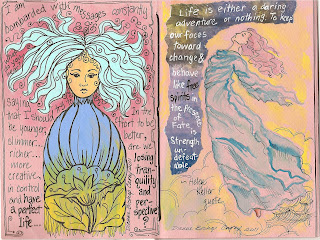 I am
bombarded with messages
constantly
saying
that I should
be younger,
slimmer...
richer...
more
creative...
in control
and have
a perfect
life
In the
effort to be
better,
are we
losing
tran-
quility
and
per-
spective?
Life is either a daring
adventure or nothing. To keep
our faces
toward
change &
behave
like free
spirits in
the Presence
of
Fate is
Strength
un-
defeat-
able
Helen
Keller
quote